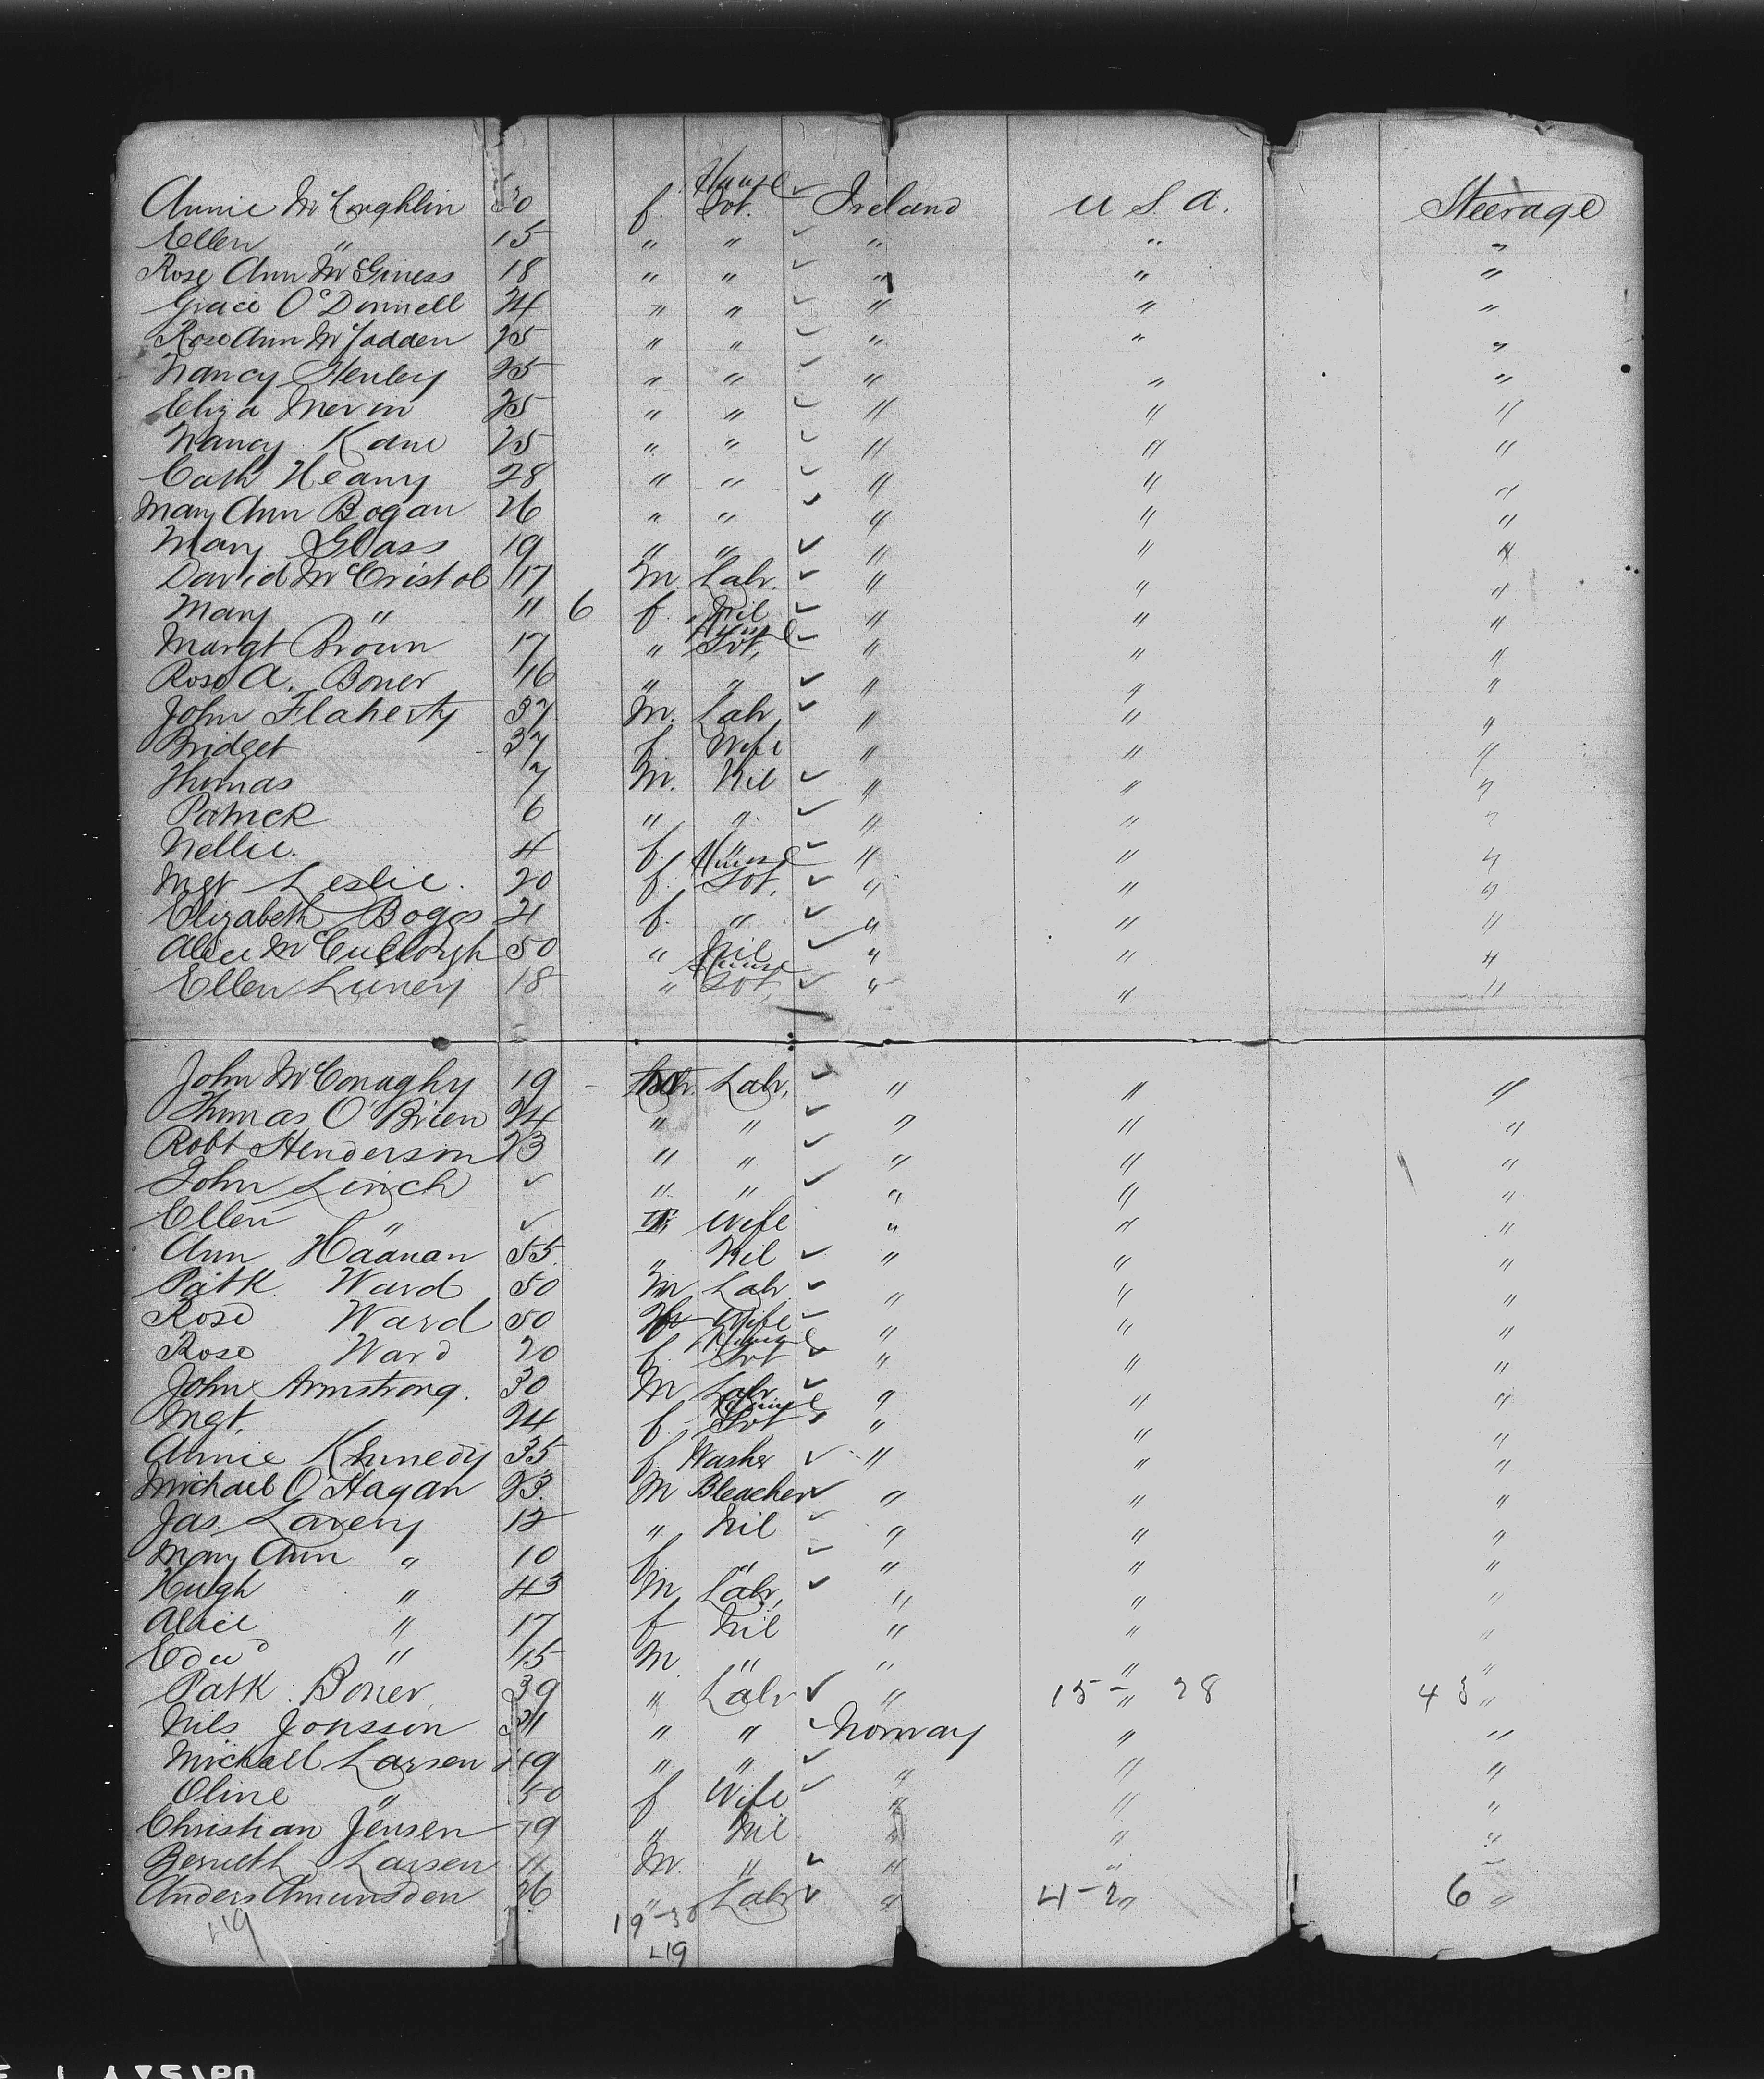 Annie McLoughlin 30 f. House Svt. ✓ Ireland U.S.A. Steerage
Ellen " 15 " " ✓ " " "
Rose Ann McGiness 18 " " ✓ " " "
Grace O'Donnell 24 " " ✓ " " "
Rose Ann McFadden 25 " " ✓ " " "
Nancy Henley 25 " " ✓ " " "
Eliza Mervin 25 " " ✓ " " "
Nancy Kane 25 " " ✓ " " "
Cath Heany 28 " " ✓ " " "
Mary Ann Bogan 26 " " ✓ " " "
Mary Glass 19 " " ✓ " " "
David McCristol 17 M Labr. ✓ " " "
Mary " 11 6 f. Nil ✓ " " "
Margt Broun 17 " House Svt. ✓ " " "
Rose A. Boner 16 " " ✓ " " "
John Flaherty 37 M. Labr ✓ " " "
Bridget 37 f Wife " " "
Thomas 7 M. Nil ✓ " " "
Patrick 6 " " ✓ " " "
Nellie. 4 f. " ✓ " " "
Mgt Leslie. 20 f. House Svt. ✓ " " "
Elizabeth Boggs 21 f. " ✓ " " "
Alice McCullough 50 " Nil ✓ " " "
Ellen Luney 18 " House Svt. ✓ " " "
John McConaghy 19 Labr. ✓ " " "
Thomas O'Brien 24 " " ✓ " " "
Robt Henderson 23 " " ✓ " " "
John Linch ✓ " " ✓ " " "
Ellen " ✓ Wife " " "
Ann Haanan 55. " Nil ✓ " " "
Patk. Ward 50 M Labr ✓ " " "
Rose Ward 50 Wife ✓ " " "
Rose Ward 20 f. House Svt ✓ " " "
John Armstrong. 30 M Labr ✓ " " "
Mgt. 24 f. House Svt " " "
Annie Kennedy 35 f Washer ✓ " " "
Michael O'Hagan 23. M Bleacher ✓ " " "
Jas. Lavery 12 " Nil ✓ " " "
Mary Ann " 10 f " ✓ " " "
Hugh " 43 M Labr. ✓ " " "
Alice " 17 f Nil " " "
Edwd " 15 M " " " "
Patk. Boner 39 " Labr ✓ " 15 - " 28 43 "
Nils Jonsson 31 " " ✓ Norway " "
Mickall Larsen 49 " " ✓ " " "
Oline " 50 f Wife ✓ " " "
Christian Jensen 19 " Nil " " "
Berneth Larsen 11 M. " ✓ " " "
Anders Amunsden 26 " Labr ✓ " 4 - 2 " 6 "
49 19-30
49